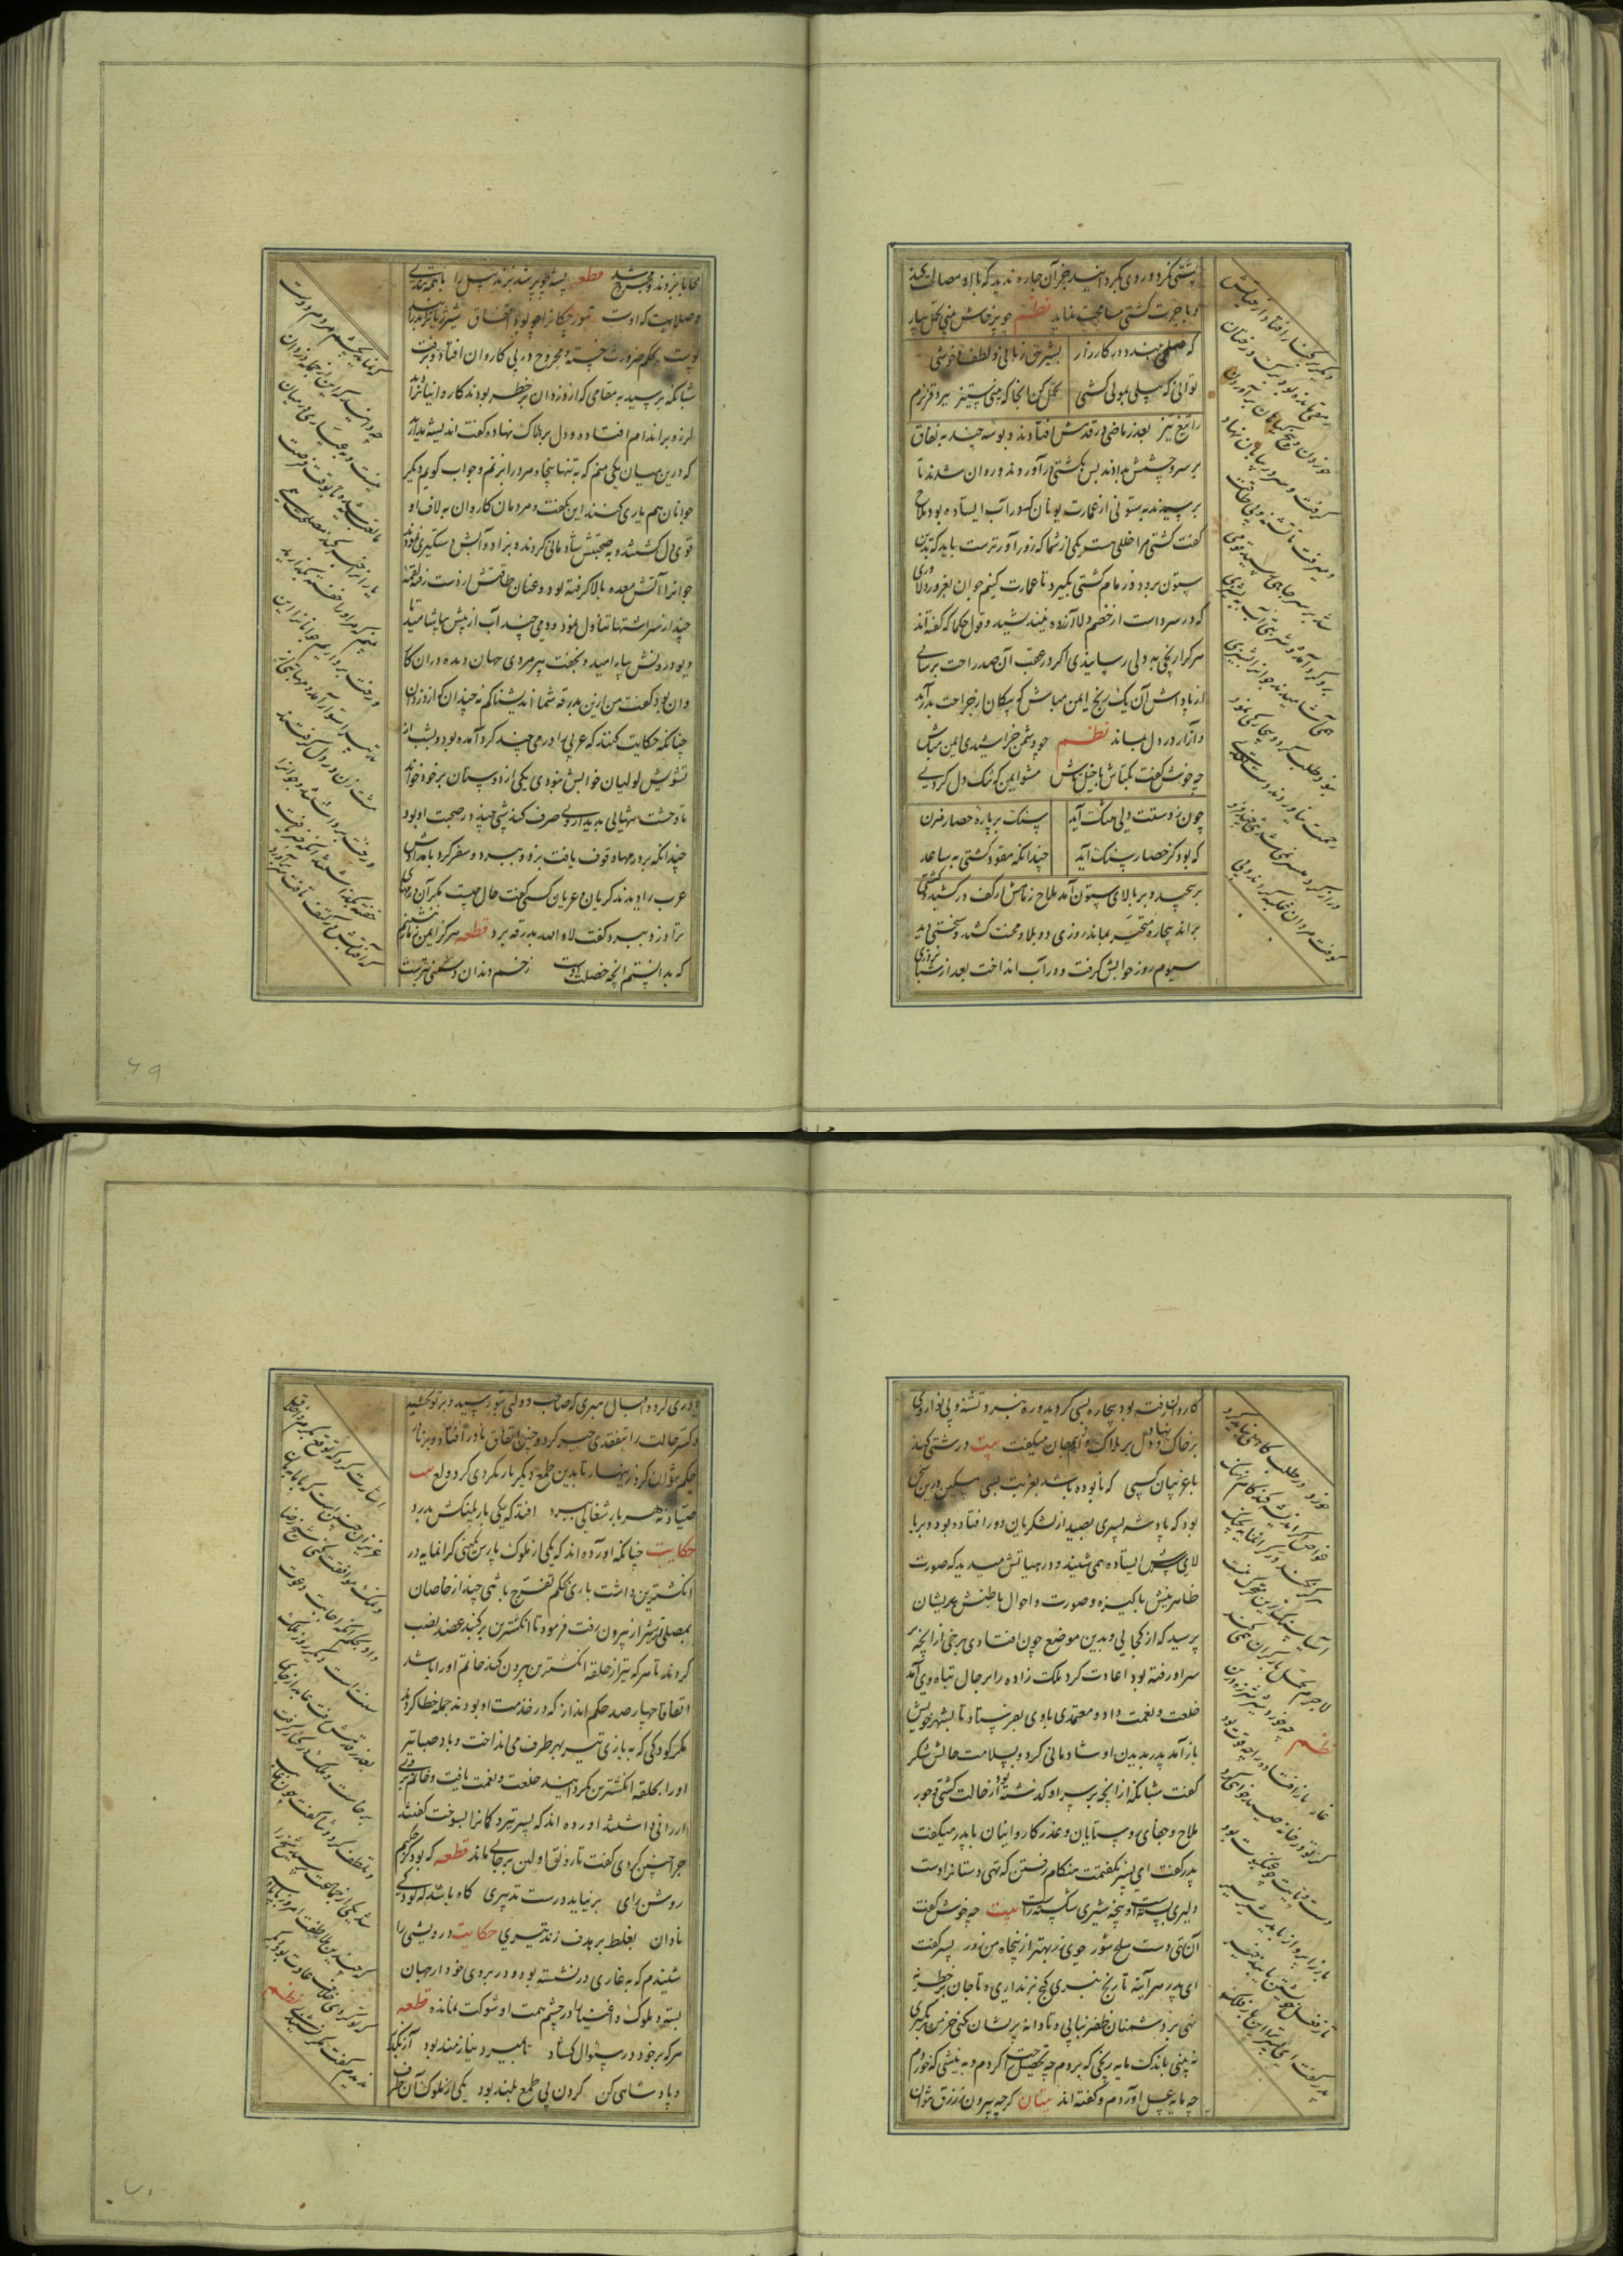 پشتی کرد و روی بگردانید جز آن چاره ندیدند که با او مصالحت کنند
و باجرت کشتی مسامحت نماید نظم چو پرخاش بینی تحمل بیار
که سهلی ببندد در کارزار بشیرین زبانی و لطف و خوشی
توانی که پیلی بمویی کشی تحمل کن آنجا که بینی ستیز نبرد قز نرم
را تیغ تیز بعذر ماضی در قدمش افتادند و بوسه چند به نفاق
بر سر و چشمش بدادند پس بکشتی در آوردند و روان شدند تا
برسیدند به ستونی از عمارت یونان که در آب ایستاده بود ملاح
گفت کشتی را خللی هست یکی از شما که زورآورترست باید که بدین
ستون برود و زمام کشتی بگیرد تا عمارت کنیم جوان بغرور دلاوری
که در سر داشت از خصم دل آزرده نیندیشید و قول حکما که گفته اند
هر کرا رنجی به دلی رسانیدی اگر در عقب آن صد راحت برسانی
از پاداش آن یک رنج ایمن مباش که پیکان از جراحت بدر آید
و آزار در دل بماند نظم
چه خوش گفت بکتاش با خیل تاش چو دشمن خراشیدی ایمن مباش
مشو ایمن که تنگ دل گردی
چون ز دستت دلی بتنگ آید سنگ بر باره حصار مزن
که بود کز حصار سنگ آید چندانکه مقود کشتی به ساعد
بر پیچید و بر بالای ستون آمد ملاح زمامش از کف در کشید و کشتی
براند بیچاره متحیر بماند روزی دو بلا و محنت کشید و سختی دید
سیوم روز خوابش گرفت و در آب انداخت بعد از شبانروزی
دیگر بر کنار افتاد و از حیاتش
رمقی مانده بود برگ درختان
خوردن و بیخ گیاهان برآوردن
گرفت و سر در بیابان نهاد
و میرفت تا تشنه و بی طاقت
شد بر سر چاهی رسید قومی
برو گرد آمده و شربتی آب به پشیزی
همی آشامیدند جوانرا پشیزی
نبود طلب کرد و بیچارگی نمود
رحمت نیاوردند دست تعدی
دراز کرد میسر نشد تنی چند را فرو
کوفت مردان غلبه کردند و بی
محابا بزدند و مجروح شد قطعه پشه چو پر شد بزند پیل را با همه تندی
و صلابت که اوست مورچگانرا چو بود اتفاق شیر ژیانرا بدرانند
پوست بحکم ضرورت خسته و مجروح در پی کاروان افتاد و برفت
شبانگه برسید به مقامی که از دزدان پر خطر بودند کاروانیانرا دید
لرزه بر اندام افتاده و دل بر هلاک نهاده گفت اندیشه مدارید
که درین میان یکی منم که به تنها پنجاه مرد را بزنم و جواب گویم دیگر
جوانان هم یاری کنند این بگفت و مردمان کاروان به لاف او
قوی دل گشتند و به صحبتش شادمانی کردند و بزاد و آبش دستگیری نمودند
جوانرا آتش معده بالا گرفته بود و عنان طاقتش از دست رفته لقمه
چند از سر اشتها تناول نمود و دمی چند آب از پیش بیاشامید تا
دیو درونش بیارامید و بخفت پیرمردی جهان دیده در آن کا
روان بود گفت من ازین بدرقه شما اندیشناکم نه چندان که از دزدان
چنانکه حکایت کنند که عربی را درمی چند گرد آمده بود و بشب از
تشویش لولیان خوابش نبودی یکی از دوستان بر خود خواند
تا وحشت تنهایی بدیدار وی صرف کند شبی چند در صحبت او بود
چندانکه بر درمها وقوف یافت بزد و ببرد و سفر کرد بامدادش
عرب را دیدند گریان و عریان کسی گفت حال چیست مگر آن درمهای
ترا دزد ببرد گفت لا والله بدرقه برد قطعه هرگز ایمن ز مار ننشستم
که بدانستم آنچه خصلت اوست زخم دندان دشمنی بترست
که نماید بچشم مردم دوست
چه دانید که این از جمله دزدان
نیست و به عیاری در میان
ما تعبیه شده تا بوقت فرصت
یارانرا خبر کند مصلحت
بینم که مر او را خفته بگذارید
و رخت بردارید جوانانرا این
تدبیر استوار آمد و مهابتی از
مشت زن در دل گرفتند
و رخت برداشتند و جوانرا
خفته بگذاشتند آنگه خبر یافت
که آفتابش در کتف تافت سر برآورد
کاروان رفته بود بیچاره بسی گردید و ره نبرد تشنه و بی نوا روی
بر خاک و دل بر هلاک نهاد و میگفت بیت درشتی کند
با غریبان کسی که نابوده باشد بغربت بسی مسکین درین سخن
بود که پادشه پسری بصید از لشکریان دور افتاده بود و بر با
لای سرش ایستاده همی شنید و در هیاتش میدید که صورت
ظاهرینش پاکیزه و صورت و احوال باطنش پریشان
پرسید که از کجایی و بدین موضع چون افتادی برخی از آنچه بر
سر او رفته بود اعادت کرد ملک زاده را بر حال تباه وی آمد
خلعت و نعمت داد و معتمدی با وی بفرستاد تا بشهر خویش
باز آمد پدر بدیدن او شادمانی کرد و بسلامت حالش شکر
گفت شبانگه از آنچه بر سر او گذشته بود از حالت کشتی و جور
ملاح و جفای روستایان و غدر کاروانیان با پدر میگفت
پدر گفت ای پسر نگفتمت هنگام رفتن که تهی دستانرا دست
دلیری بسته است و پنجه شیری شکسته بیت چه خوش گفت
آن تهی دست سلح شور جوی زر بهتر از پنجاه من زور پسر گفت
ای پدر هر آینه تا رنج نبری گنج برنداری و تا جان در خطر ننهی
بر دشمنان ظفر نیابی و تا دانه پریشان نکنی خرمن برنگیری
نه بینی باندک مایه رنجی که بردم چه تحصیل راحت کردم و به نیشی که خوردم
چه مایه عسل آوردم و گفته اند بیتان گرچه بیرون ز رزق نتوان
خورد در طلب کاهلی نباید کرد
غواص گر اندیشه کند کام نهنگ
هرگز نکند در گرانمایه بچنگ
آسیا سنگ زیرین متحرک نیست
لاجرم تحمل بار گران همی کند
نظم چه خورد شیر شرزه در بن
غار باز افتاده را چه قوت بود
گر تو در خانه صید خواهی کرد
دست و پایت چو عنکبوت بود
پدر گفت ای پسر ترا این بار فلک
یاوری کرد و اقبال رهبری که صاحب دولتی بتو رسید و بر تو بخشید
و کسر حالت را بتفقدی جبر کرد و چنین اتفاق نادر افتد و بر نادر
حکم نتوان کرد زینهار تا بدین طمع دیگر بار نگردی گرد ولع بیت
صیاد نه هر بار شغالی ببرد افتد که یکی بار پلنگش بدرد
حکایت چنانکه آورده اند که یکی از ملوک پارس نگینی گرانمایه در
انگشترین داشت باری بحکم تفرج با تنی چند از خاصان
بمصلی شیراز بیرون رفت فرمود تا انگشترین بر گنبد عضد نصب
کردند تا هر که تیر از حلقه انگشترین بیرون کند خاتم او را باشد
اتفاقا چهارصد حکم انداز که در خدمت او بودند جمله خطا کردند
مگر کودکی که به بازی تیر بهر طرف می انداخت و باد صبا تیر
او را بحلقه انگشترین بگردانید خلعت و نعمت یافت و خاتم بوی
ارزانی داشتند آورده اند که پسر تیر و کمانرا بسوخت گفتند
چرا چنین کردی گفت تا رونق اولین بر جای ماند قطعه که بود کز حکیم
روشن رای بر نیاید درست تدبیری گاه باشد که کودکی
نادان بغلط بر هدف زند تیری حکایت درویشی را
شنیدم که به غاری در نشسته بود و در بروی خود از جهان
بسته و ملوک و اغنیا را در چشم همت او شوکت نمانده قطعه
هر که بر خود در سوال گشاد تا بمیرد نیازمند بود آز بگذار
و پادشاهی کن گردن بی طمع بلند بود یکی از ملوک آن طرف
اشارت کرد که توقع بکرم اخلاق
عزیزان چنین است که با ما بنان
و نمک موافقت کنند شیخ رضا
داد بحکم آنکه اجابت دعوت
سنت است دیگر روز ملک
بعذر قدمش رفت عابد از جای
برخاست و ملک را در کنار گرفت
و تلطف کرد و ثنا گفت چون غایب
شد یکی از جماعت پرسید شیخ را
که چندین ملاطفت امروز با پادشاه
که تو کردی خلاف عادت بود دیگر
ندیدم گفت نشنیده نظم